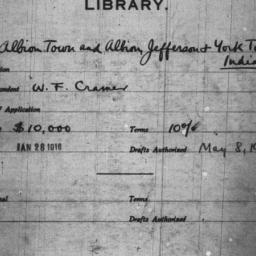 LIBRARY.
Albion Town and Albion, Jefferson & York T
India
W. F. Cramer
Application
$10,000 Terms 10%
JAN 26 1916 Drafts Authorized May 8, 19
Terms
Drafts Authorized